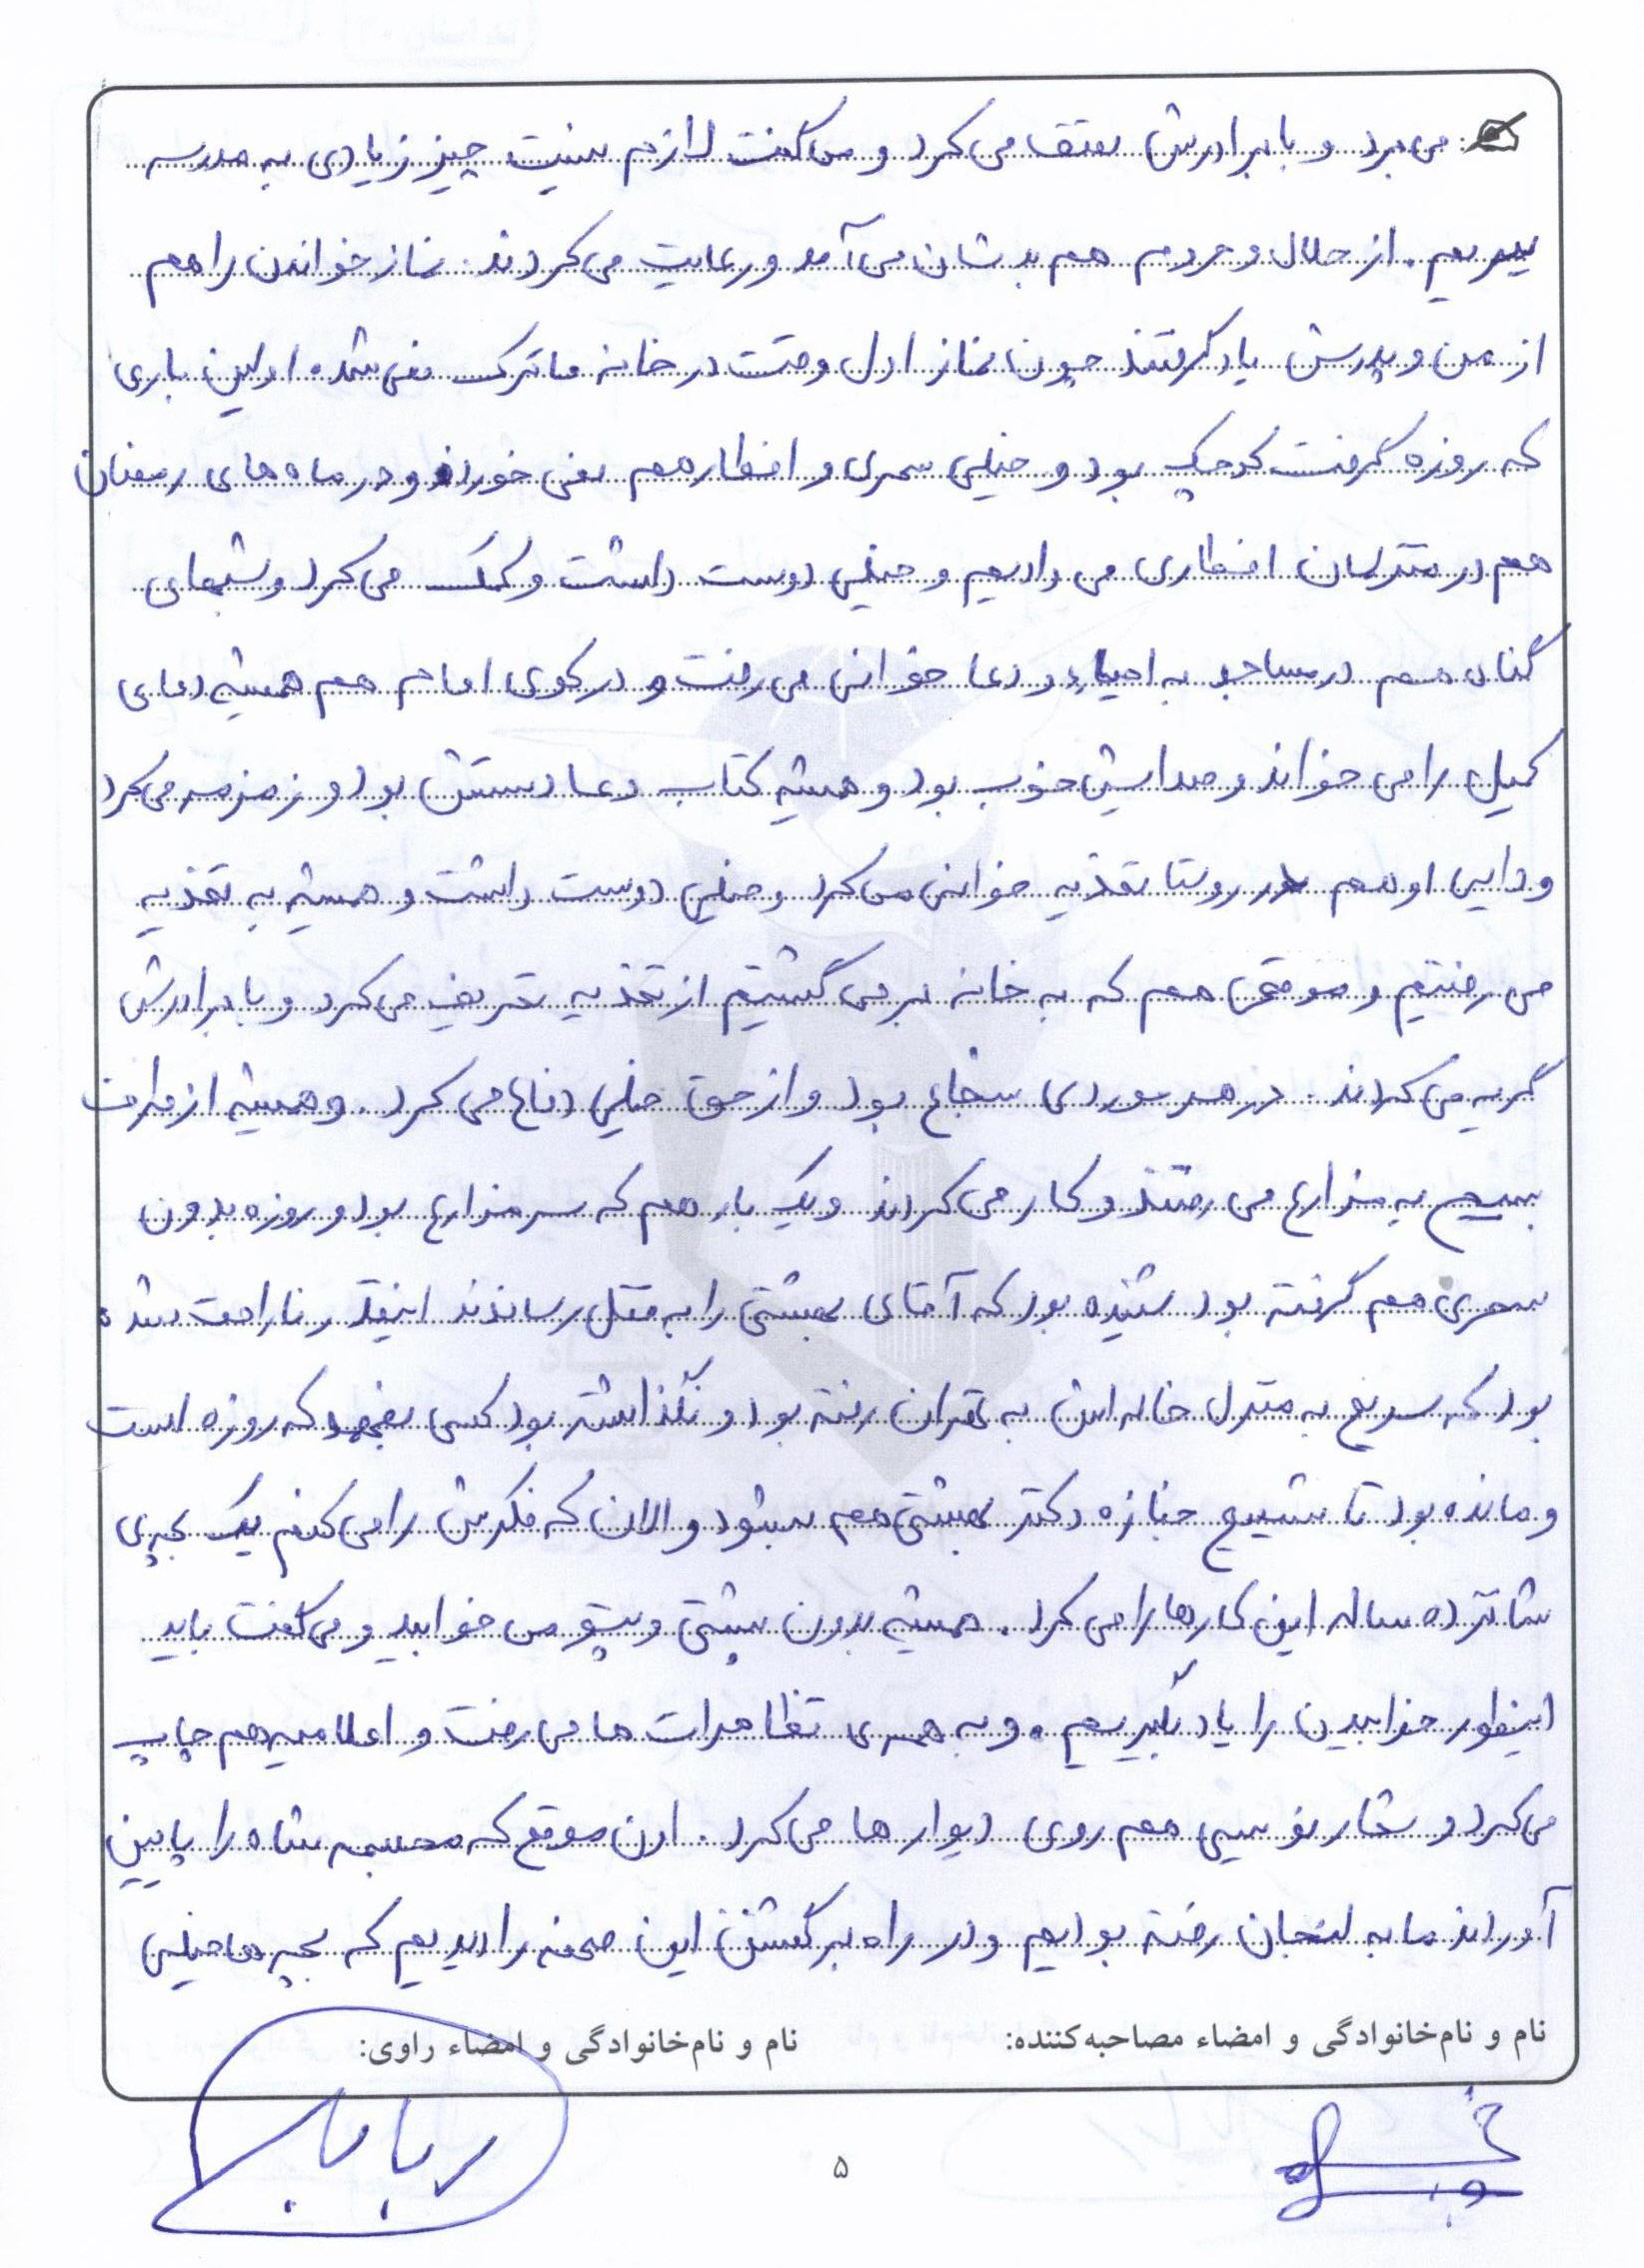 می برد و با برادرش نصف می کرد و می گفت لازم نیست چیز زیادی به مدرسه
ببریم. از حلال و حروم هم بدشان می آمد و رعایت می کردند. نماز خواندن را هم
از من و پدرش یاد گرفتند چون نماز اول وقت در خانه ما ترک نمی شد. اولین باری
که روزه گرفت کوچک بود و خیلی سحری و افطار هم نمی خورد و در ماه های رمضان
هم در منزلمان افطاری می دادیم و خیلی دوست داشت و کمک می کرد و شبهای
هم در مساجد به احیاء و دعا خوانی می رفت و در کوی امام هم همیشه دعای
کمیل را می خواند و صدایش خوب بود و همیشه کتاب دعا دستش بود و زمزمه می کرد
و دایی او هم در روستا تعذیه خوانی می کرد و خیلی دوست داشت و همیشه به تعذیه
می رفتیم و موقعی هم که به خانه بر می گشتیم از تعذیه تعریف می کرد و با برادرش
گریه می کردند. در هر موردی شجاع بود و از حق خیلی دفاع می کرد. و همیشه از طرف
بسیج به مزارع می رفتند و کار می کردند و یک بار هم که سر مزارع بود و روزه بدون
سحری هم گرفته بود شنیده بود که آقای بهشتی را به قتل رساندند اینقدر ناراحت شده
بود که سریع به منزل خاله اش به تهران رفته بود و نگذاشته بود کسی بفهمد که روزه است
و مانده بود تا تشییع جنازه دکتر بهشتی هم بشود و الان که فکرش را می کنم یک بچه ی
شانزده ساله این کارها را می کرد. همیشه بدون پشتی و پتو می خوابید و می گفت باید
اینطور خوابیدن را یاد بگیریم. و به همه ی تظاهرات ها می رفت و اعلامیه هم چاپ
می کرد و شعار نویسی هم روی دیوار ها می کرد. اون موقع که مجسمه شاه را پایین
آوردند ما به لنجان رفته بودیم و در راه برگشتن این صحنه را دیدیم که بچه ها خیلی
نام و نام‌خانوادگی و امضاء مصاحبه‌کننده:
نام و نام‌خانوادگی و امضاء راوی:
۵